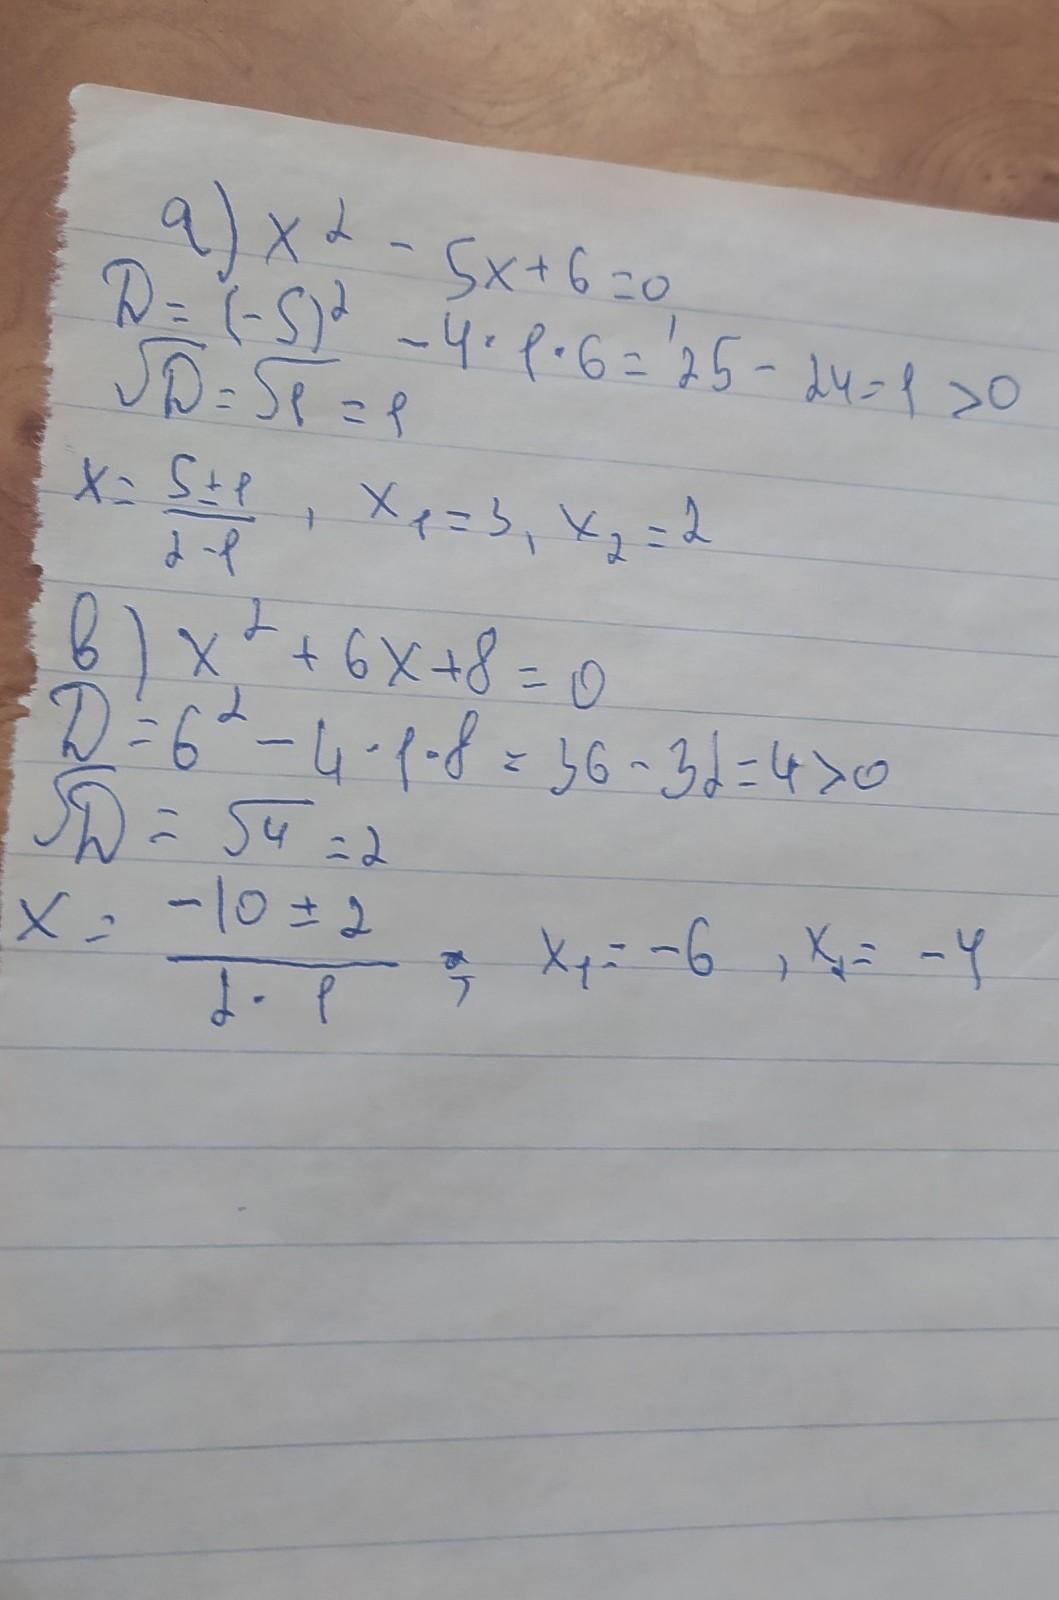 a) x² - 5x+6=0
D = (-5)² - 4·1·6 = 25 - 24=1 >0
√D = √1 = 1
x = (5±1)/(2·1) , x₁=3, x₂=2
в) x² + 6x+8=0
D = 6² - 4·1·8 = 36 - 32=4>0
√D = √4 = 2
x = (-10 ± 2)/(2·1) , x₁= -6 , x₂= -4